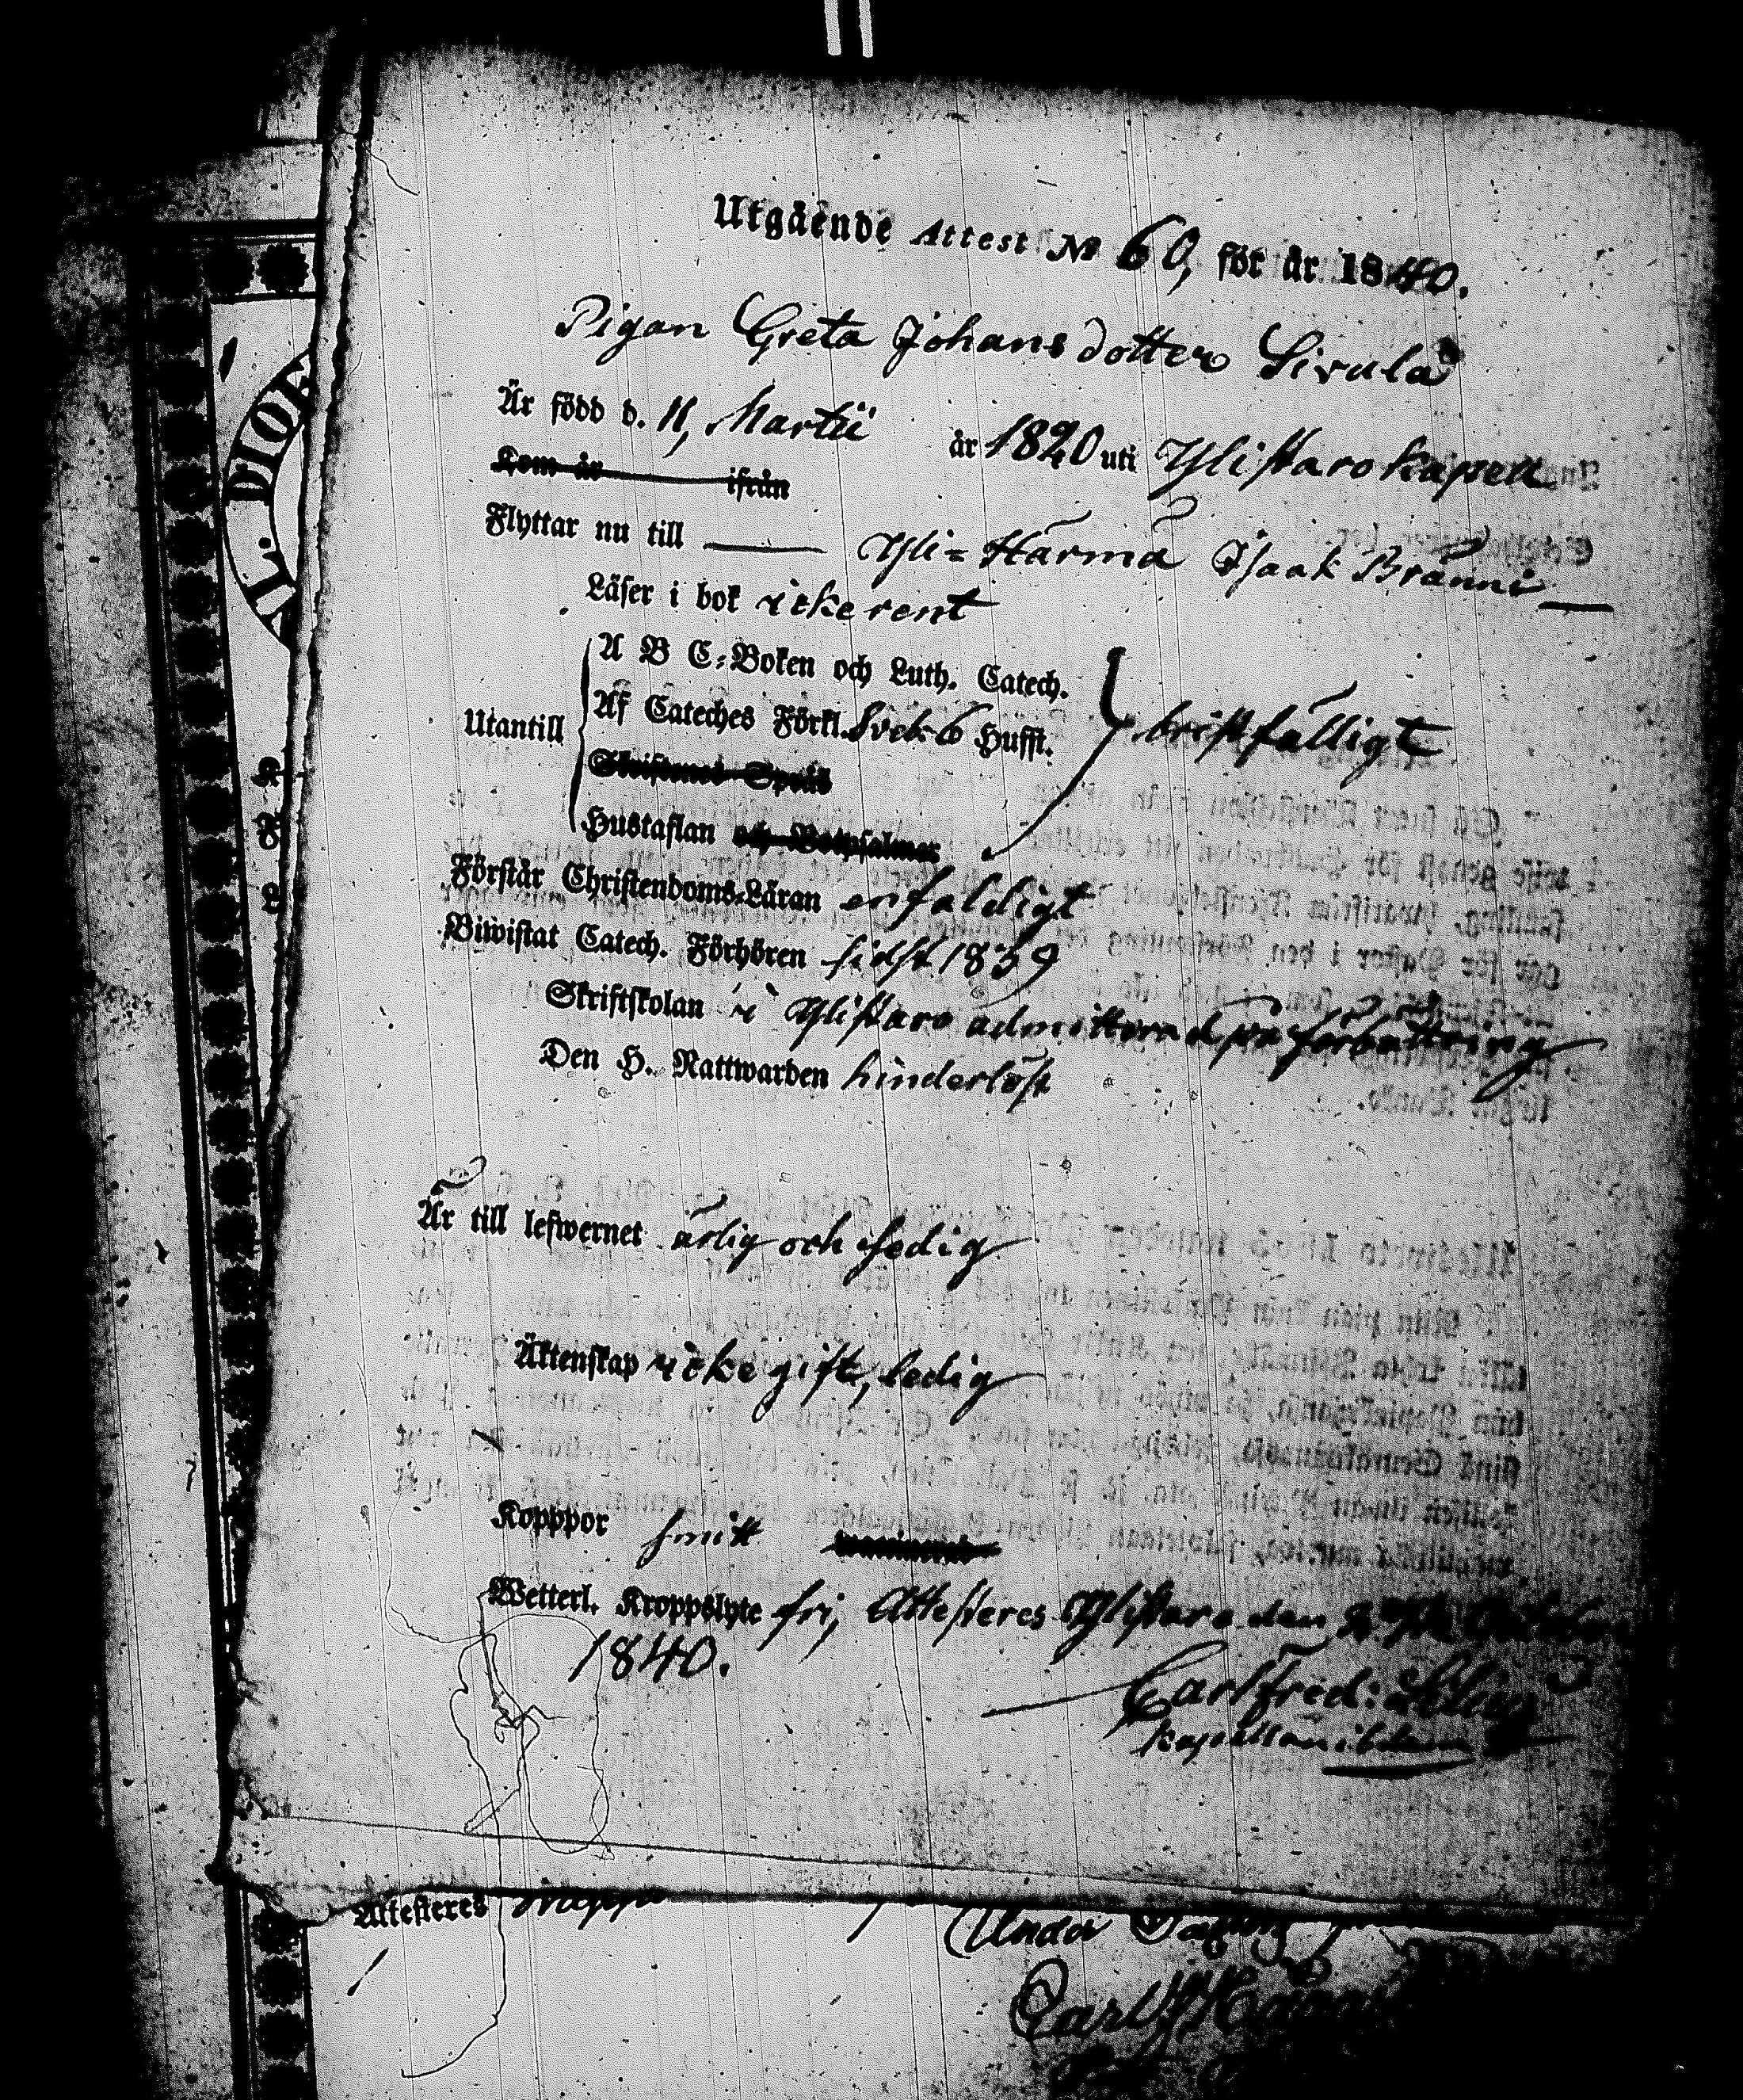 Utgående Attest № 60, för år 1840.
Pigan Greta Johans dotter Sivula
Är född d. 11, Martii år 1820 uti Ylistaro kapell
Kom år ifrån
Flyttar nu till Yli=Härmä Isaak Bränni
Läser i bok icke rent
A B C-Boken och Luth. Catech.
Utantill Af Cateches Förkl. Sveb. 6 Hufst. bristfälligt
Skriftenes Språk
Hustaflan och Botpsalmer
Förstår Christendoms-Läran enfaldigt
Biwistat Catech. Förhören sidst 1839
Skriftskolan i Ylistaro admitterad på förbättring
Den H. Nattwarden hinderlöst
Är till lefwernet ärlig och sedig
Äktenskap icke gift, ledig
Kopppor smitt
Wetterl. Kroppslyte fri, Attesteres Ylistaro den
1840.
Carl Fred:
Kapellan ibidem
Attesteres
Carl
VL. DIOE
K
F
L